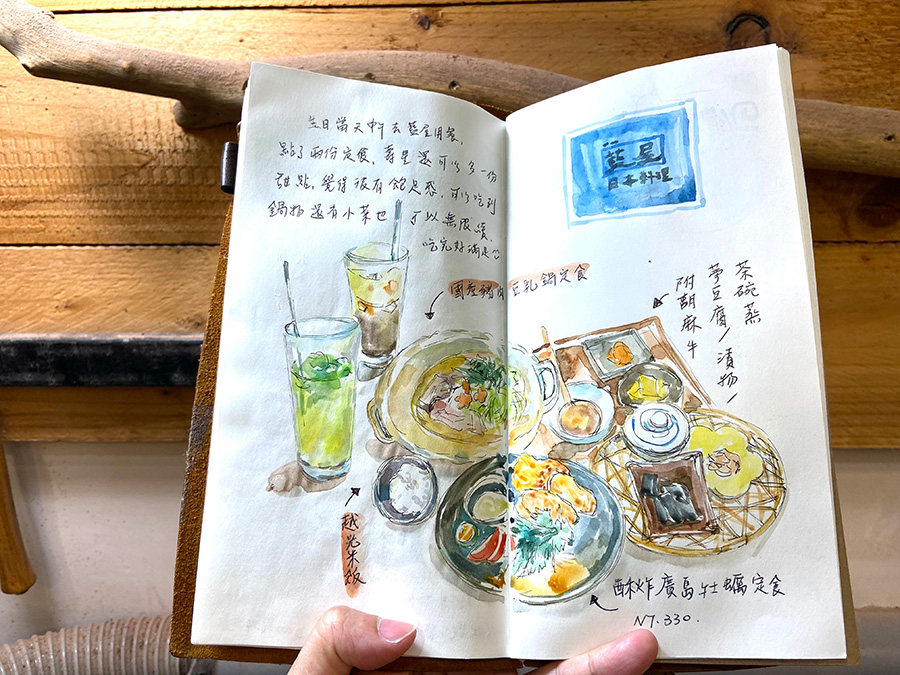 生日當天中午去藍星用餐,
點了兩份定食, 壽星還可以多一份
甜點, 覺得很有飽足感, 可以吃到
鍋物還有小菜也 可以無限續,
吃完好滿足
國產豬肉豆乳鍋定食
越光米飯
藍星
日本料理
茶碗蒸
豆腐/漬物/
附胡麻牛
酥炸廣島牡蠣定食
NT.330.